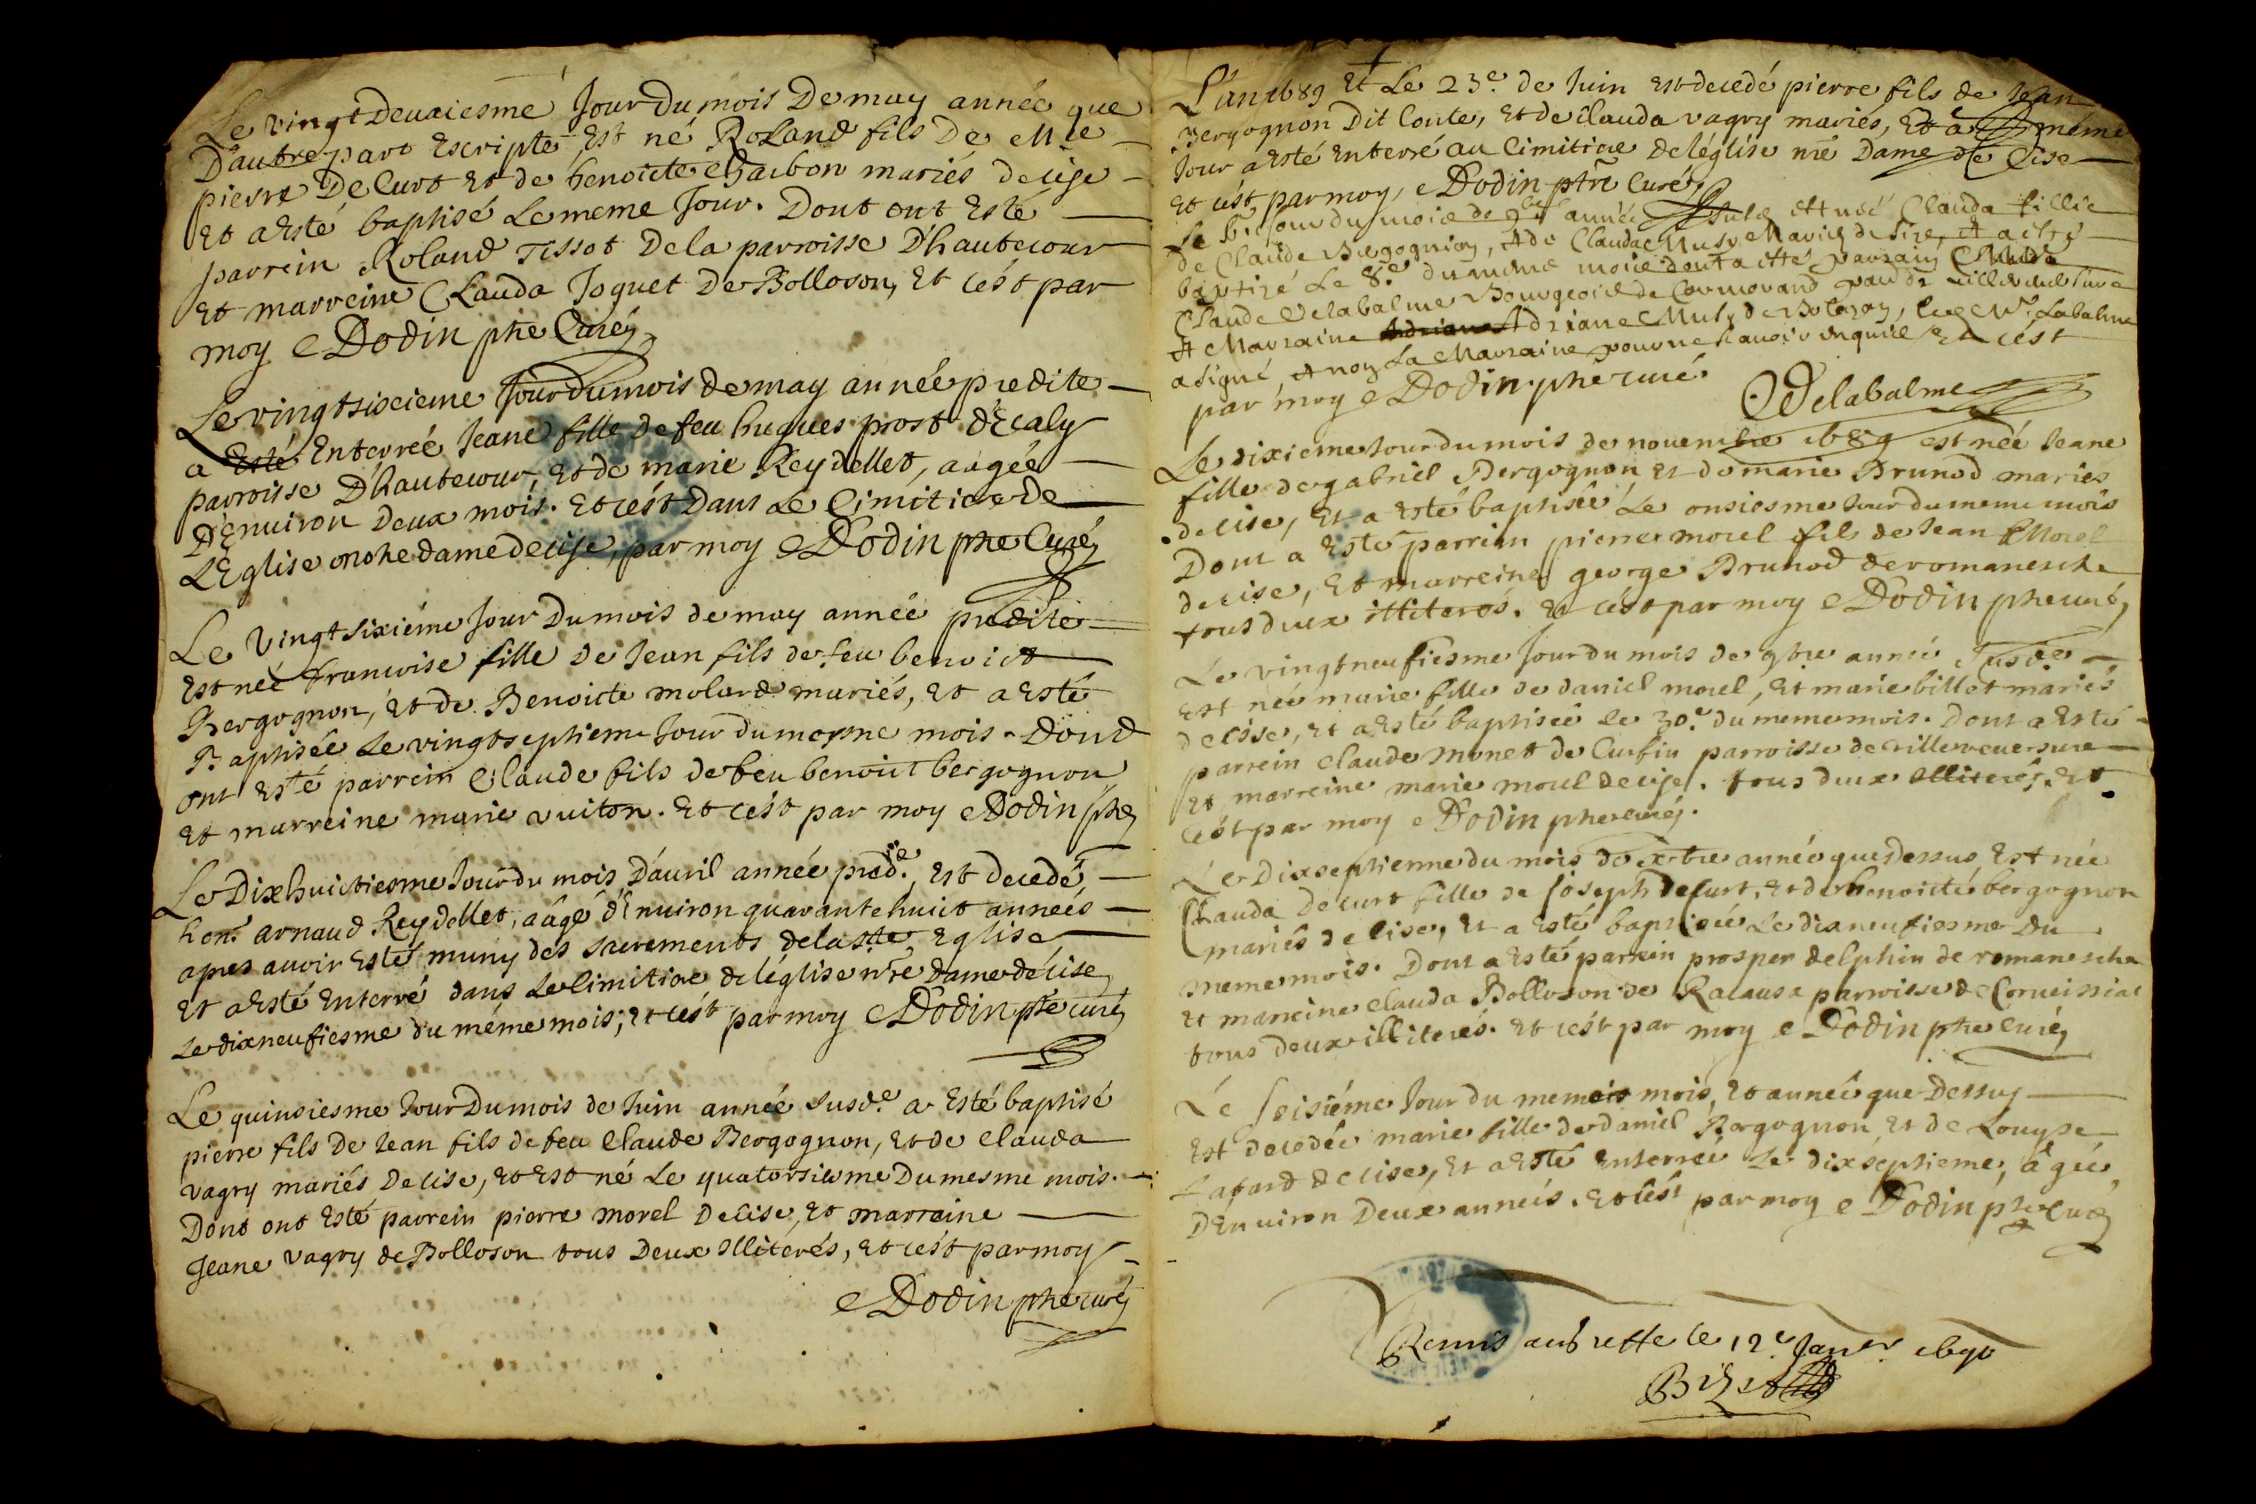 Le vingtdeuxiesme Jour du mois De may année que
D'autre part Escripte Est né Roland fils De Me
pierre De Curt et de benoicte Charbon mariés de cise
Et a Esté baptisé Le meme Jour. Dont ont Esté
parrein Roland Tissot De la parroisse D'hautecour
Et marreine Clauda Joguet De Bolloson, Et c'ést par
moy Dodin ptre Curé
Le vingtsixieme Jour du mois de may année predite
a Esté Enterreé Jeane fille de feu hugues prost d'Ecaly
parroisse D'hautecour, et de marie Reydellet, aagée
D'Enuiron Deux mois. Et c'ést Dans Le Cimitiere de
L'Eglise nostre dame De cise, par moy Dodin ptre Curé
Le Vingtsixiéme Jour Du mois de may année predite
Est neé francoise fille De Jean fils de feu benoict
Bergognon, Et de Benoicte molard mariés, Et a Esté
Baptisée Le vingtseptieme Jour du mesme mois. Dont
ont Esté parrein Claude fils de feu benoict bergognon
Et marreine marie vuiton. Et c'ést par moy Dodin ptre
Le Dixhuictiesme Jour du mois D'auril année pred.e, Est decedé
hon. arnaud Reydellet, aâgé d'Enuiron quarante huict anneés
apres auoir Esté muny des sacrements de la ste Eglise
Et a Esté Enterré dans Le Cimitiere de léglise nre Dame de cise
Le dixneufiesme du méme mois; Et c'ést par moy Dodin ptre curé
Le quinsiesme Jour Du mois de Juin année susd.e a Esté baptisé
pierre fils De Jean fils de feu Claude Bergognon, Et de Clauda
vagry mariés De cise, Et Est né Le quatorsiesme Du mesme mois.
Dont ont Esté parrein pierre morel De cise, Et marreine
Jeane vagry de Bolloson tous Deux Illitérés, Et c'ést par moy
Dodin ptre curé
L'an 1689 Et Le 23.e de Juin Est decedé pierre fils de Jean
Bergognon Dit Conte, Et de Clauda vagry mariés, Et a méme
Jour a Esté Enterré au Cimitiere de léglise nre Dame de Cise
Et c'ést par moy, Dodin ptre Curé
Le jour du mois de année est neé Clauda fillie
de Claude Bergognion, et de Clauda Musy Mariés de Size, et a esté
baptizé Le 8.e du mesme mois dont a esté parrain
Claude Delabalme Bourgeois de Cormorand
et Marraine Adriane Musy de Bolozon, Led. Mr. Labalme
a signé, et non La Marraine pour ne Sauoir enquise Et c'ést
par moy Dodin ptre curé
Delabalme
Le dixieme Jour du mois de nouembre 1689 est neé Jeane
fille de gabriel Bergognon Et de marie Brunod mariés
de cise, Et a Esté baptisée Le onsiesme Jour du meme mois
Dont a Esté parrein pierre morel fils de Jean Morel
de cise, Et marreine george Brunod de romanesche
tous deux illiterés. Et c'ést par moy Dodin ptre curé
Le vingtneufiesme Jour du mois de 9bre année Susd.e
Est neé marie fille de daniel morel, Et marie billet mariés
de Cise, Et a Esté baptisée le 30.e du meme mois. Dont a Esté
parrein Claude monet de Curfin parroisse de villereuersure
Et marreine marie morel de cise. tous deux Illiterés, Et
c'ést par moy Dodin ptre curé.
Le Dixseptienne du mois de xbre année que dessus Est née
Clauda decurt fille de Joseph decurt, Et de benoicte bergognon
mariés de Cise, Et a Esté baptisée Le dixneufiesme Du
meme mois. Dont a Esté parrein prosper delphin de romanesche
Et marreine Clauda Bolloson de Racausa parroisse de Corueissiat
tous deux illiterés. Et c'ést par moy Dodin ptre Curé
Le Seisiéme Jour du meme mois, Et année que Dessus
Est decedée marie fille de daniel Bergognon Et de Louyse
Lafard de Cise, Et a Esté Enterreé Le dixseptieme, âgée
D'Enuiron Deux anneés. Et c'ést par moy Dodin ptre Curé
Remis au Greffe le 12.e Jan.er 1690